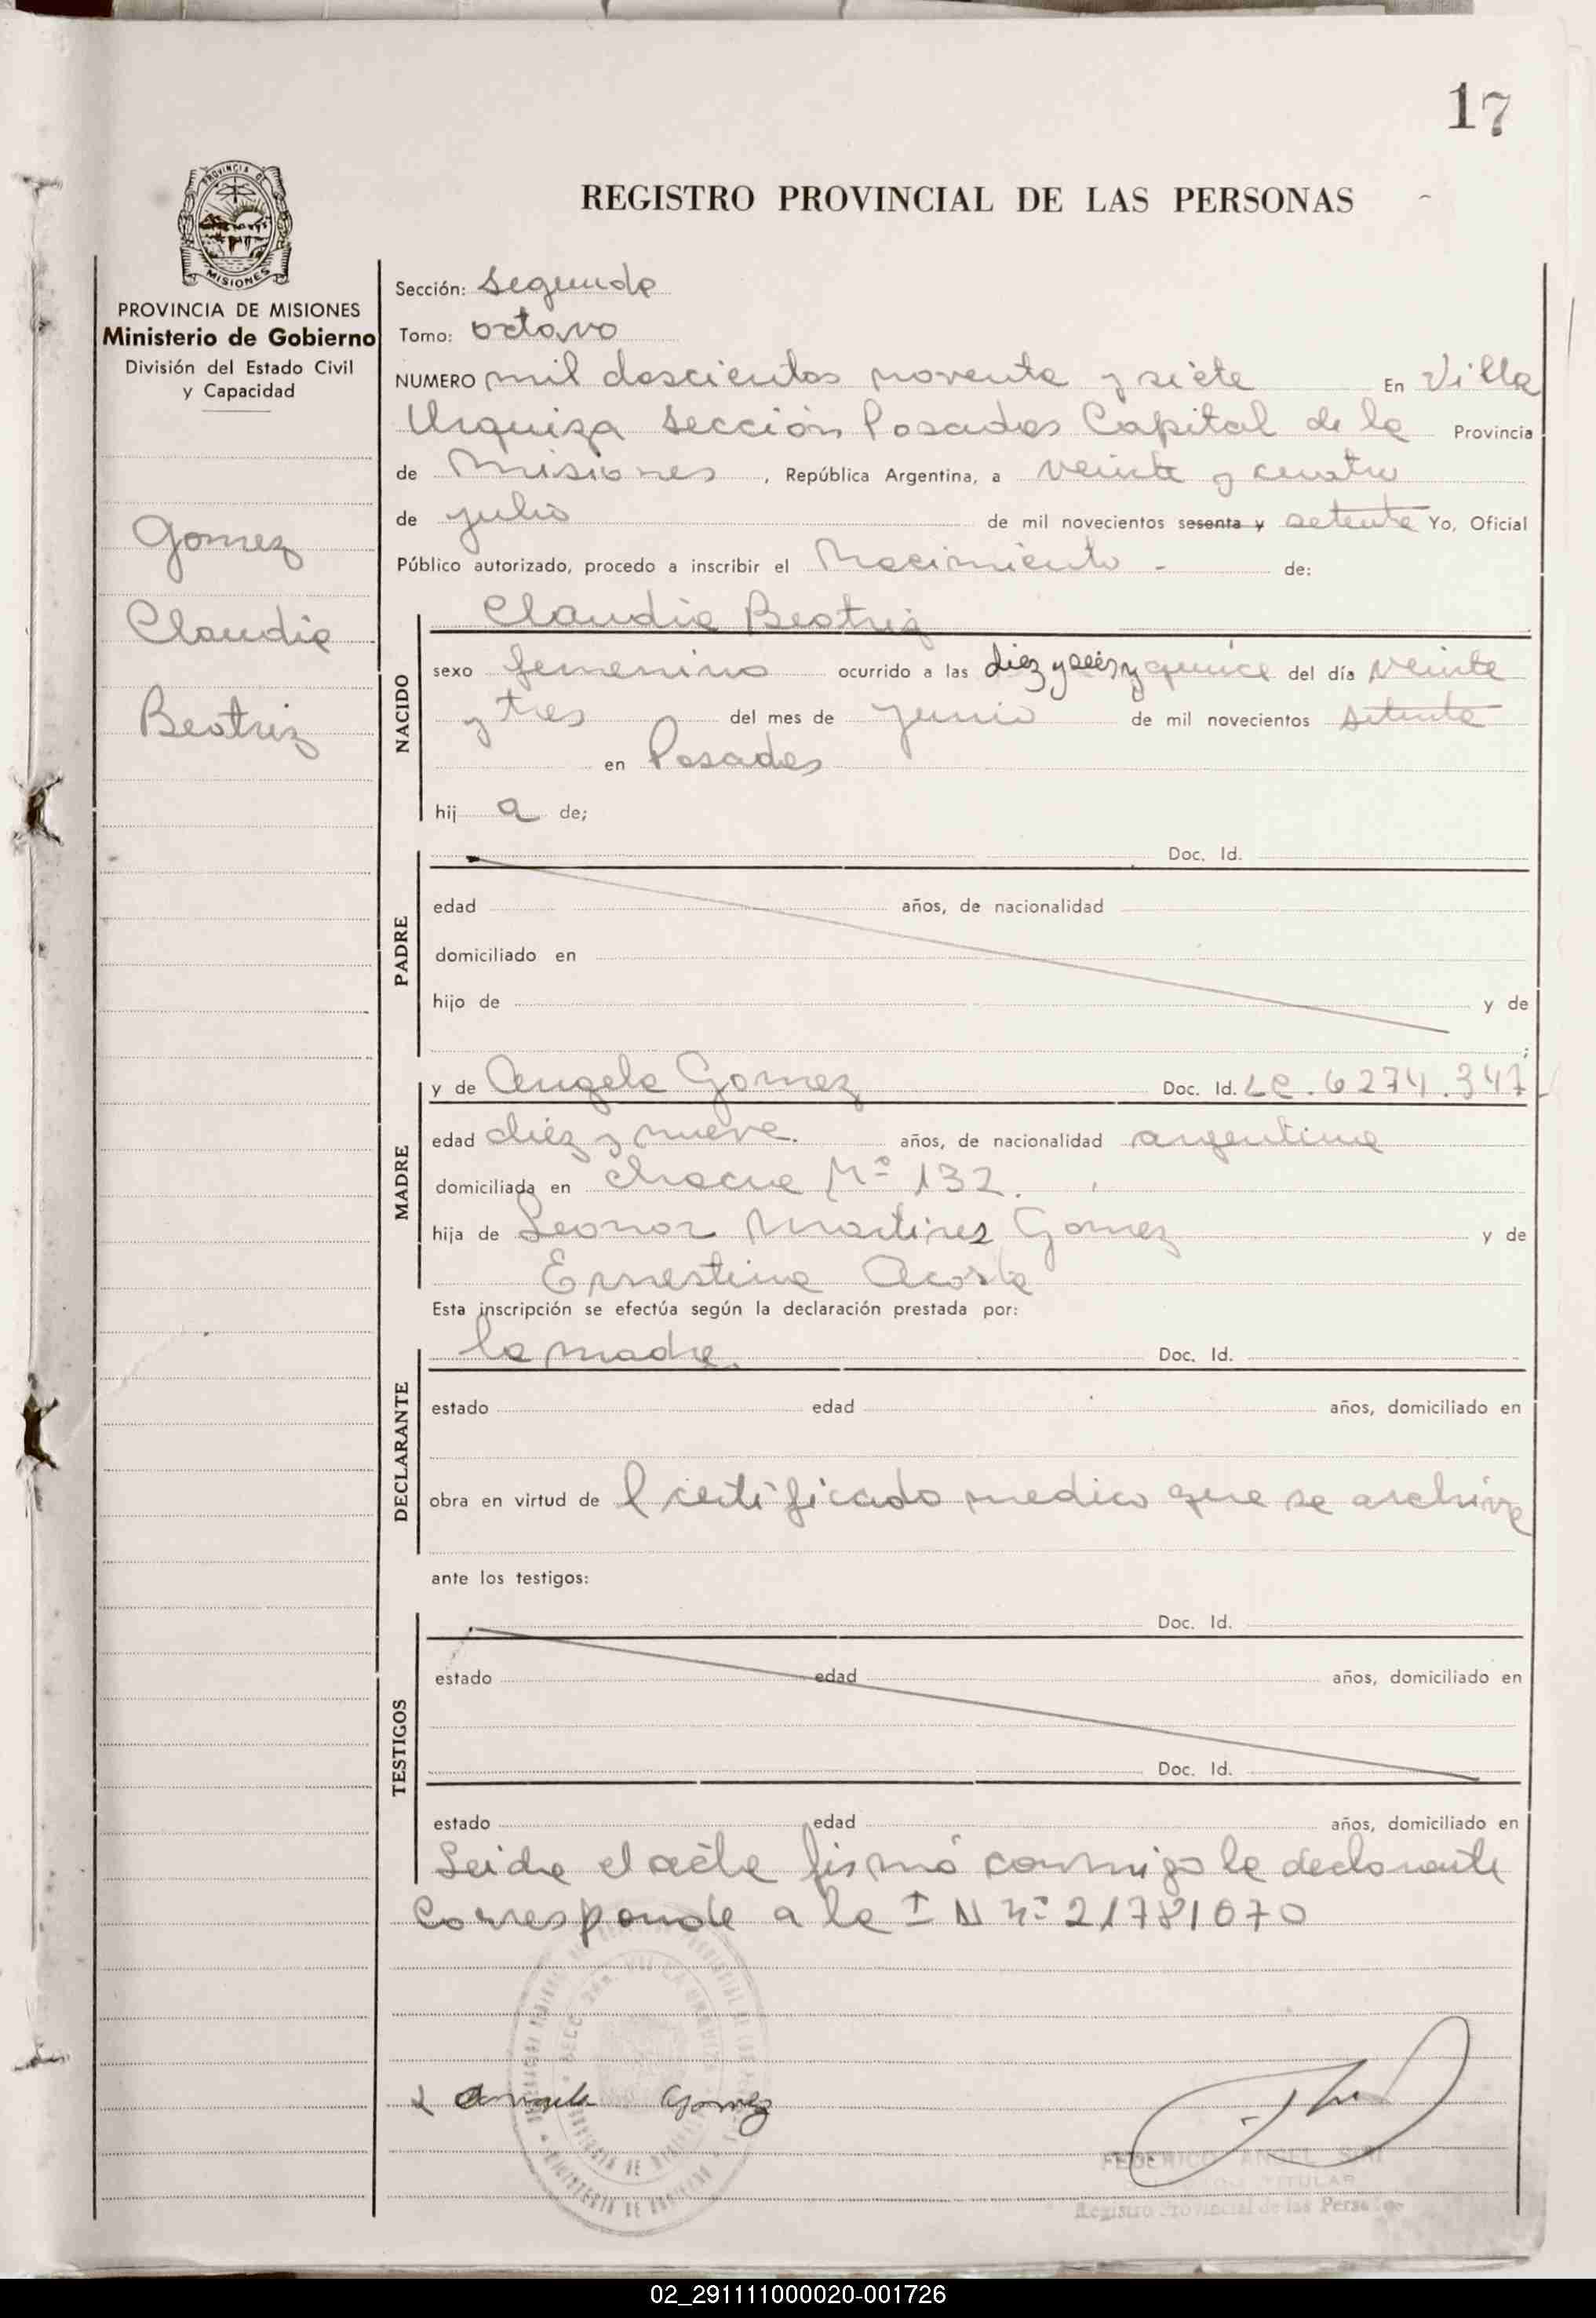 17
PROVINCIA DE
MISIONES
PROVINCIA DE MISIONES
Ministerio de Gobierno
División del Estado Civil
y Capacidad
Gomez
Claudia
Beatriz
REGISTRO PROVINCIAL DE LAS PERSONAS
Sección: Segunda
Tomo: octavo
NUMERO mil doscientos noventa y siete En Villa
Urquiza Sección Posadas Capital de la Provincia
de Misiones, República Argentina, a veinte y cuatro
de julio de mil novecientos sesenta y setenta Yo, Oficial
Público autorizado, procedo a inscribir el Nacimiento - de:
Claudia Beatriz
NACIDO
sexo femenino ocurrido a las diez y seis y quince del día veinte
y tres del mes de junio de mil novecientos setenta
en Posadas
hij a de;
PADRE
Doc. Id.
edad años, de nacionalidad
domiciliado en
hijo de y de
;
MADRE
y de Angela Gomez Doc. Id. LC. 6274.347
edad diez y nueve. años, de nacionalidad argentina
domiciliada en Chacra Nº 132.
hija de Leonor Martires Gomez y de
Ernestina Acosta
Esta inscripción se efectúa según la declaración prestada por:
DECLARANTE
la madre. Doc. Id.
estado edad años, domiciliado en
obra en virtud de l certificado medico que se archiva
ante los testigos:
TESTIGOS
Doc. Id.
estado edad años, domiciliado en
Doc. Id.
estado edad años, domiciliado en
Leida el acta firmó conmigo la declarante
Corresponde a la I N nº 21781070
Angela Gomez
FEDERICO ANGEL
TITULAR
Registro Provincial de las Personas
02_291111000020-001726